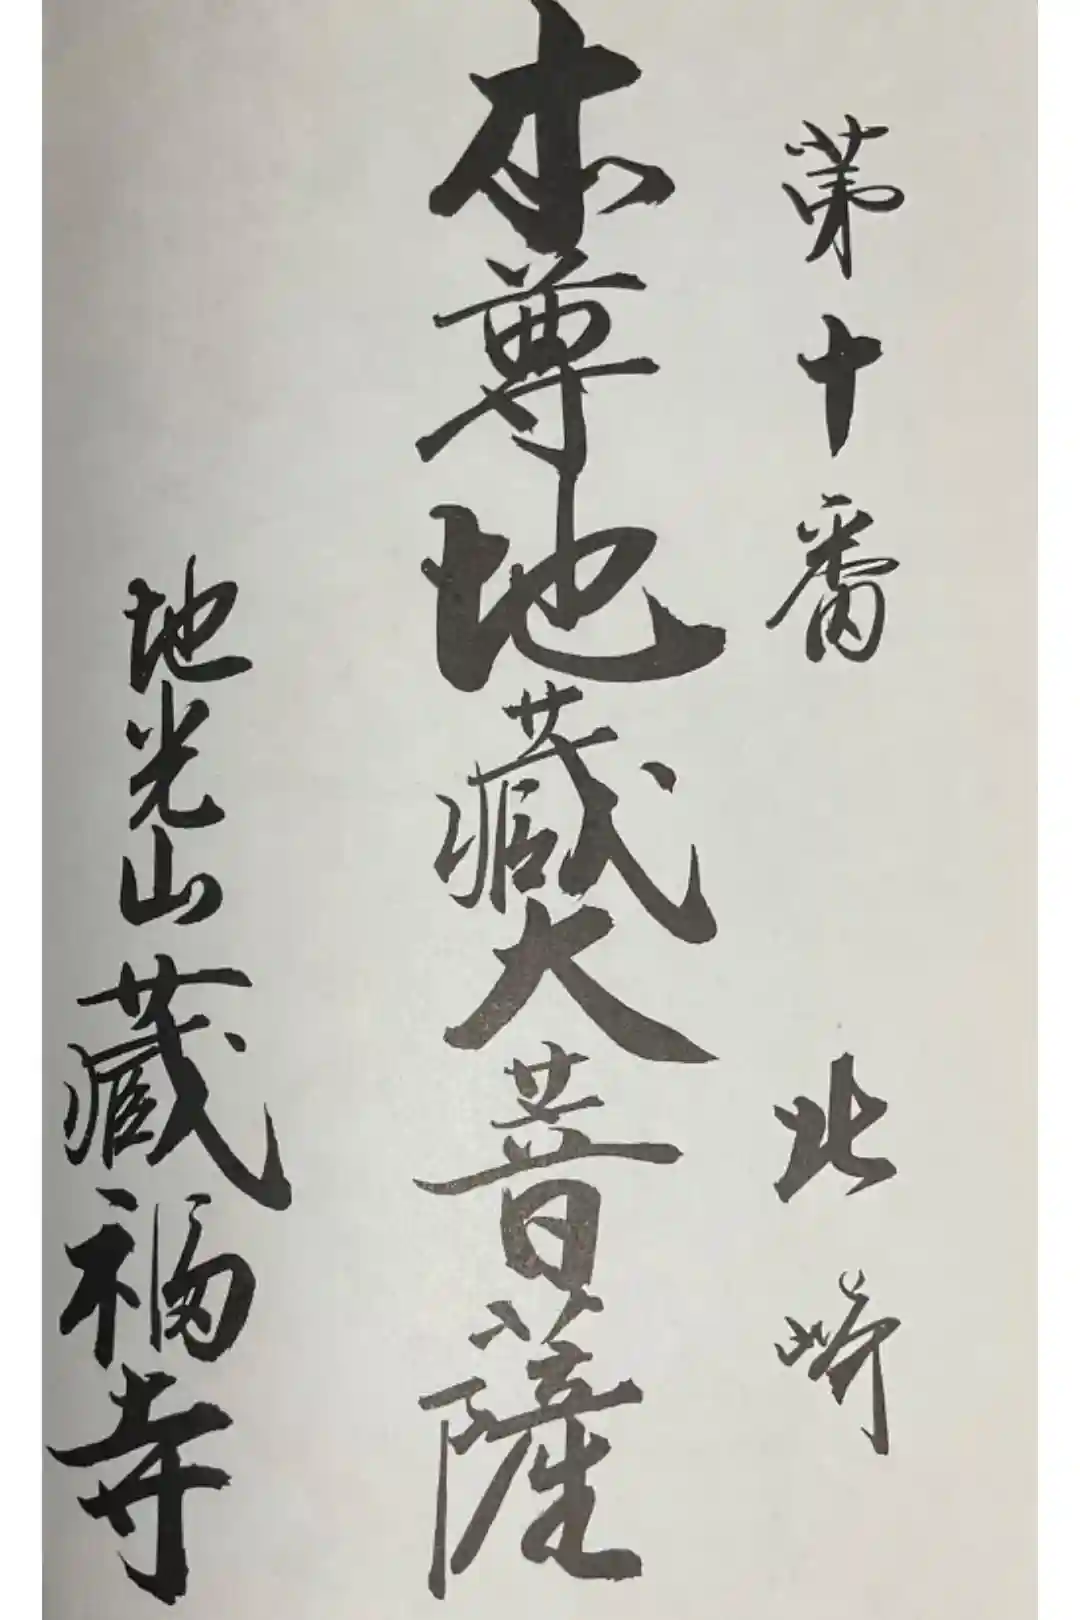 第十番 北崎
本尊地藏大菩薩
地光山藏福寺